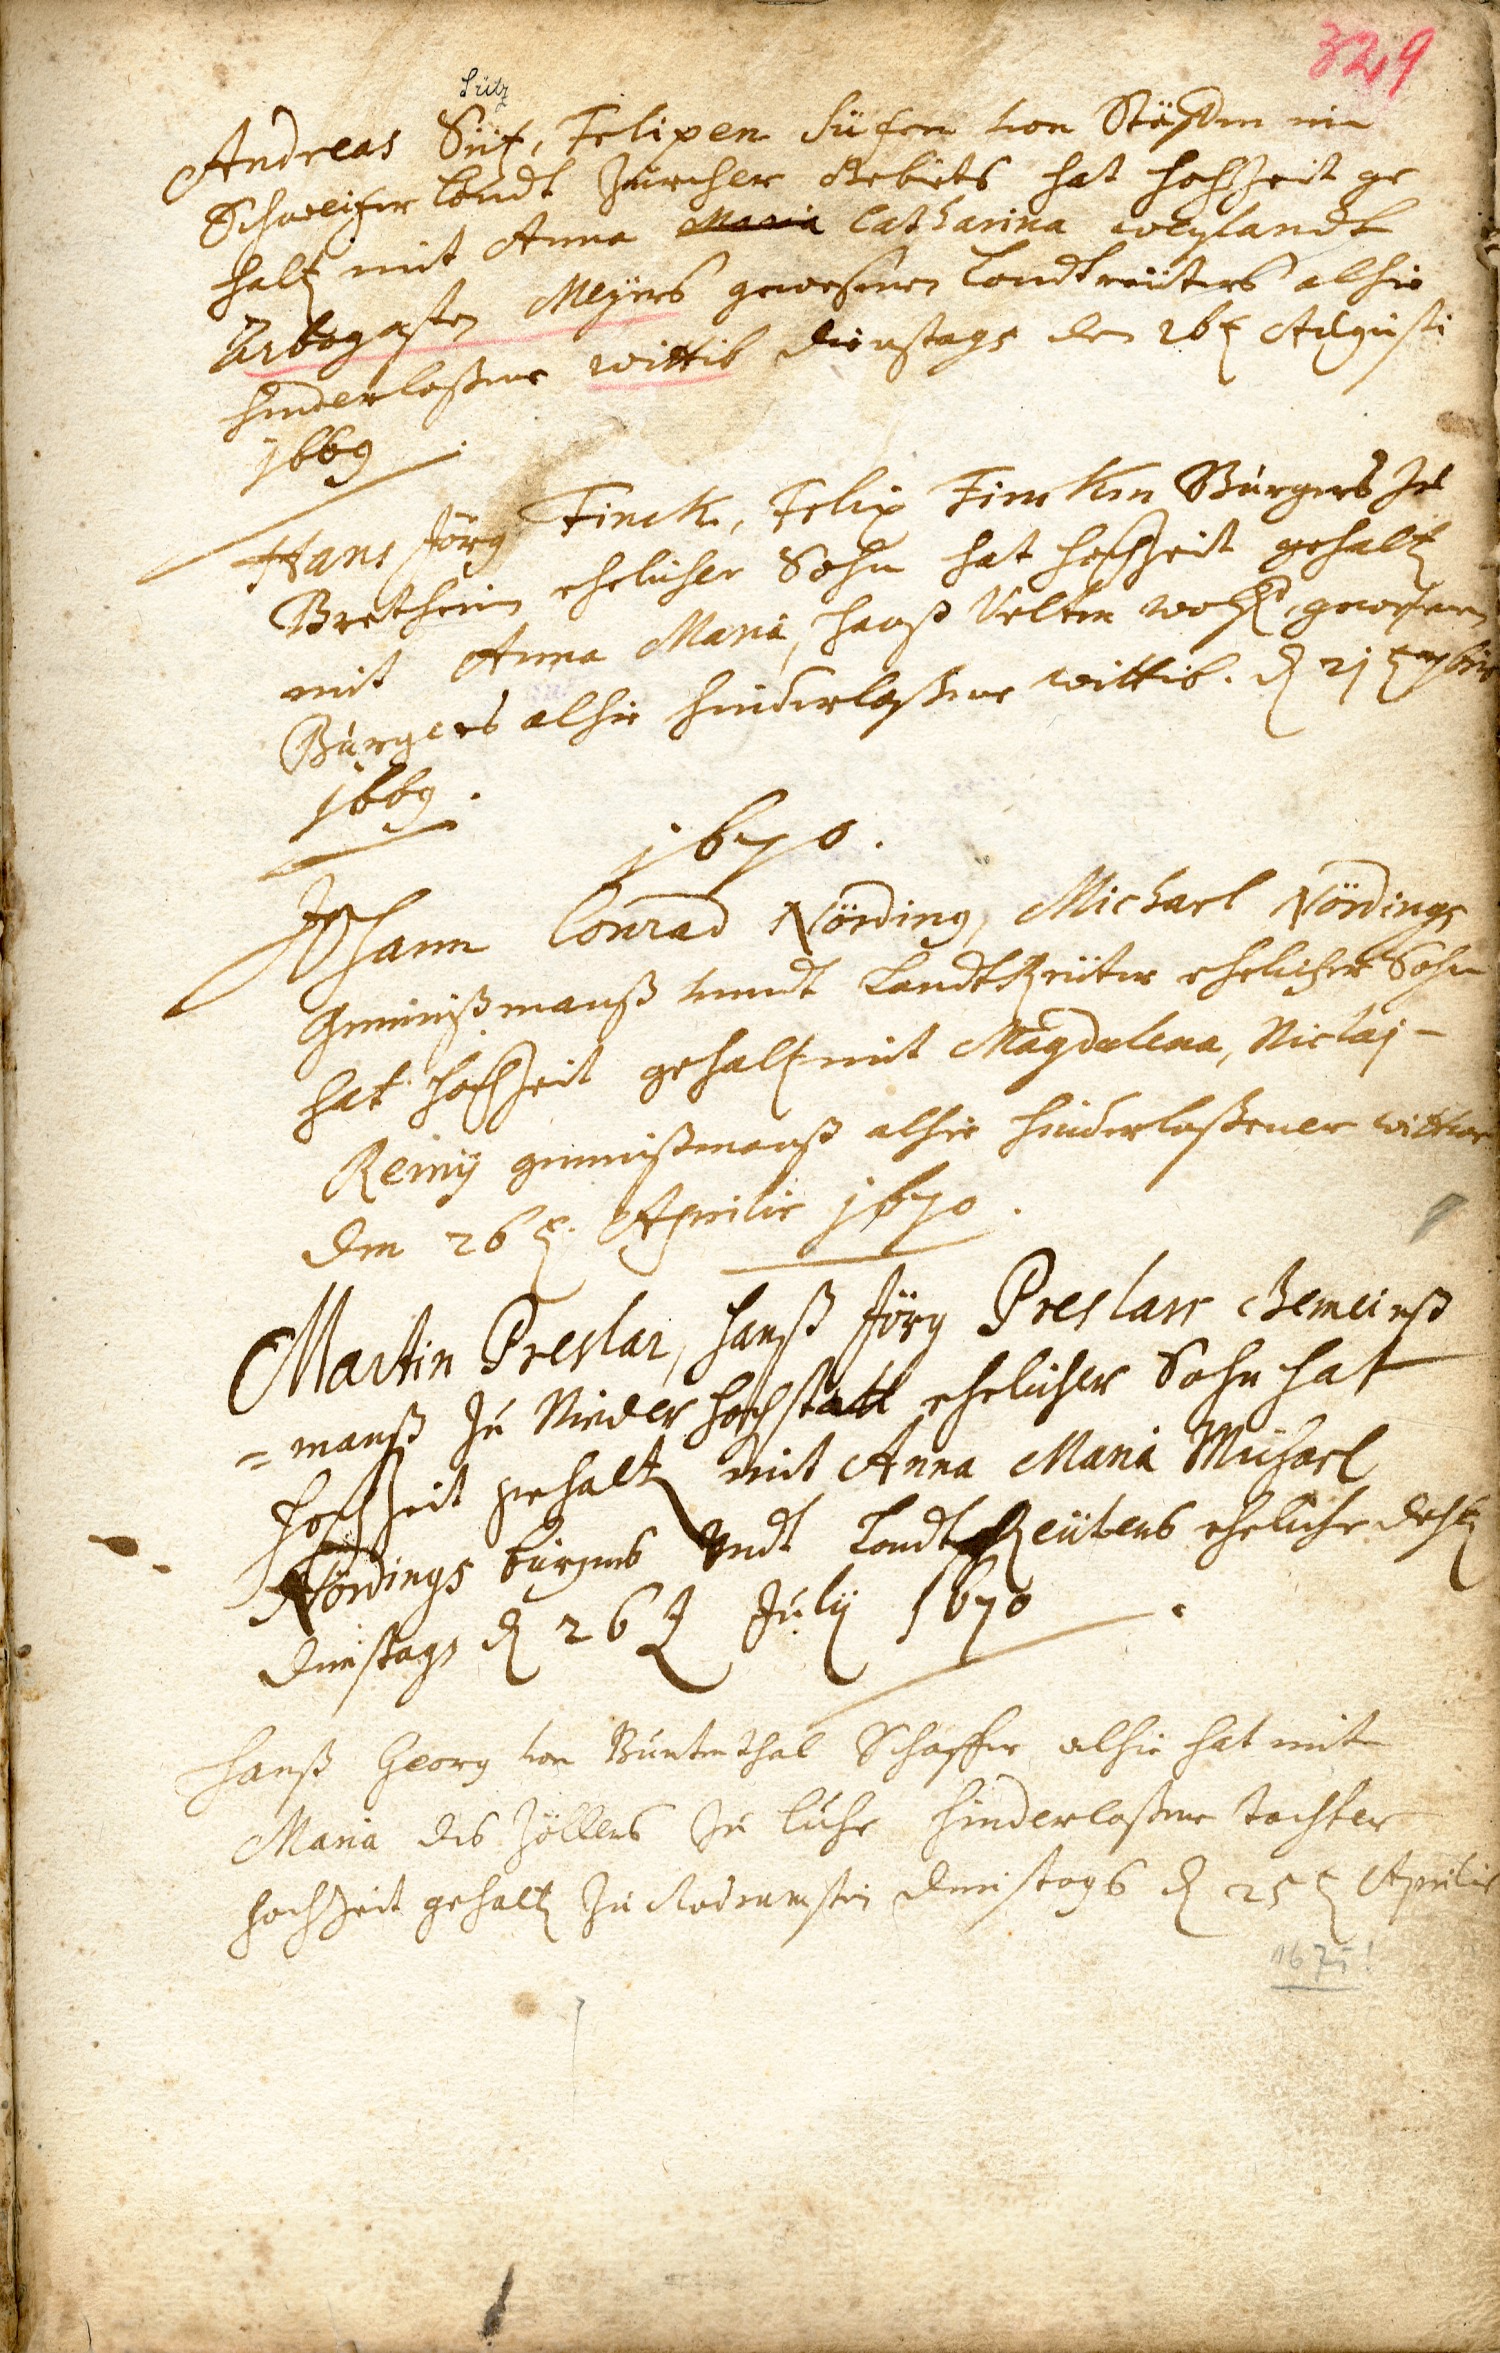 329
Sütz
Andreas Süz, Felixen Süsen von Stäffen im
Schweizer Landt Zürcher Gebiets hat hochzeit ge
halt mit Anna Maria Catharina weylandt
Arbogasten Meyers gewesenen Landtreüters alhie
hinderlaßene wittib Dienstags den 26t Augusti
1669
Hans Jörg Finck, Felix Fincken Bürgers zu
Bretheim ehelicher Sohn hat hochzeit gehalt
mit Anna Maria, hanß Velten gewesenen
Bürgers alhie hinderlaßene wittib. d 21t 7bris
1669.
1670.
Johann Conrad Nörding, Michael Nördings
Gemeinßmanß undt Landt Reüter ehelicher Sohn
hat hochzeit gehalt mit Magdalena, Niclaj
Remy gemeinßmanß alhie hinderlaßener wittwe
Den 26t. Aprilis 1670.
Martin Preslar, hanß Jörg Preslars Gemeinß
= manß zu Nieder hochstatt ehelicher Sohn hat
hochzeit gehalt mit Anna Maria Michael
Nördings bürgers Undt Landt Reüters eheliche docht
Dinstags d 26 July 1670.
Hanß Georg von Buntenthal Schaffer alhie hat mit
Maria des Zöllers zu hinderlaßene tochter
hochzeit gehalt zu Dinstags d 25t Aprilis
1671!